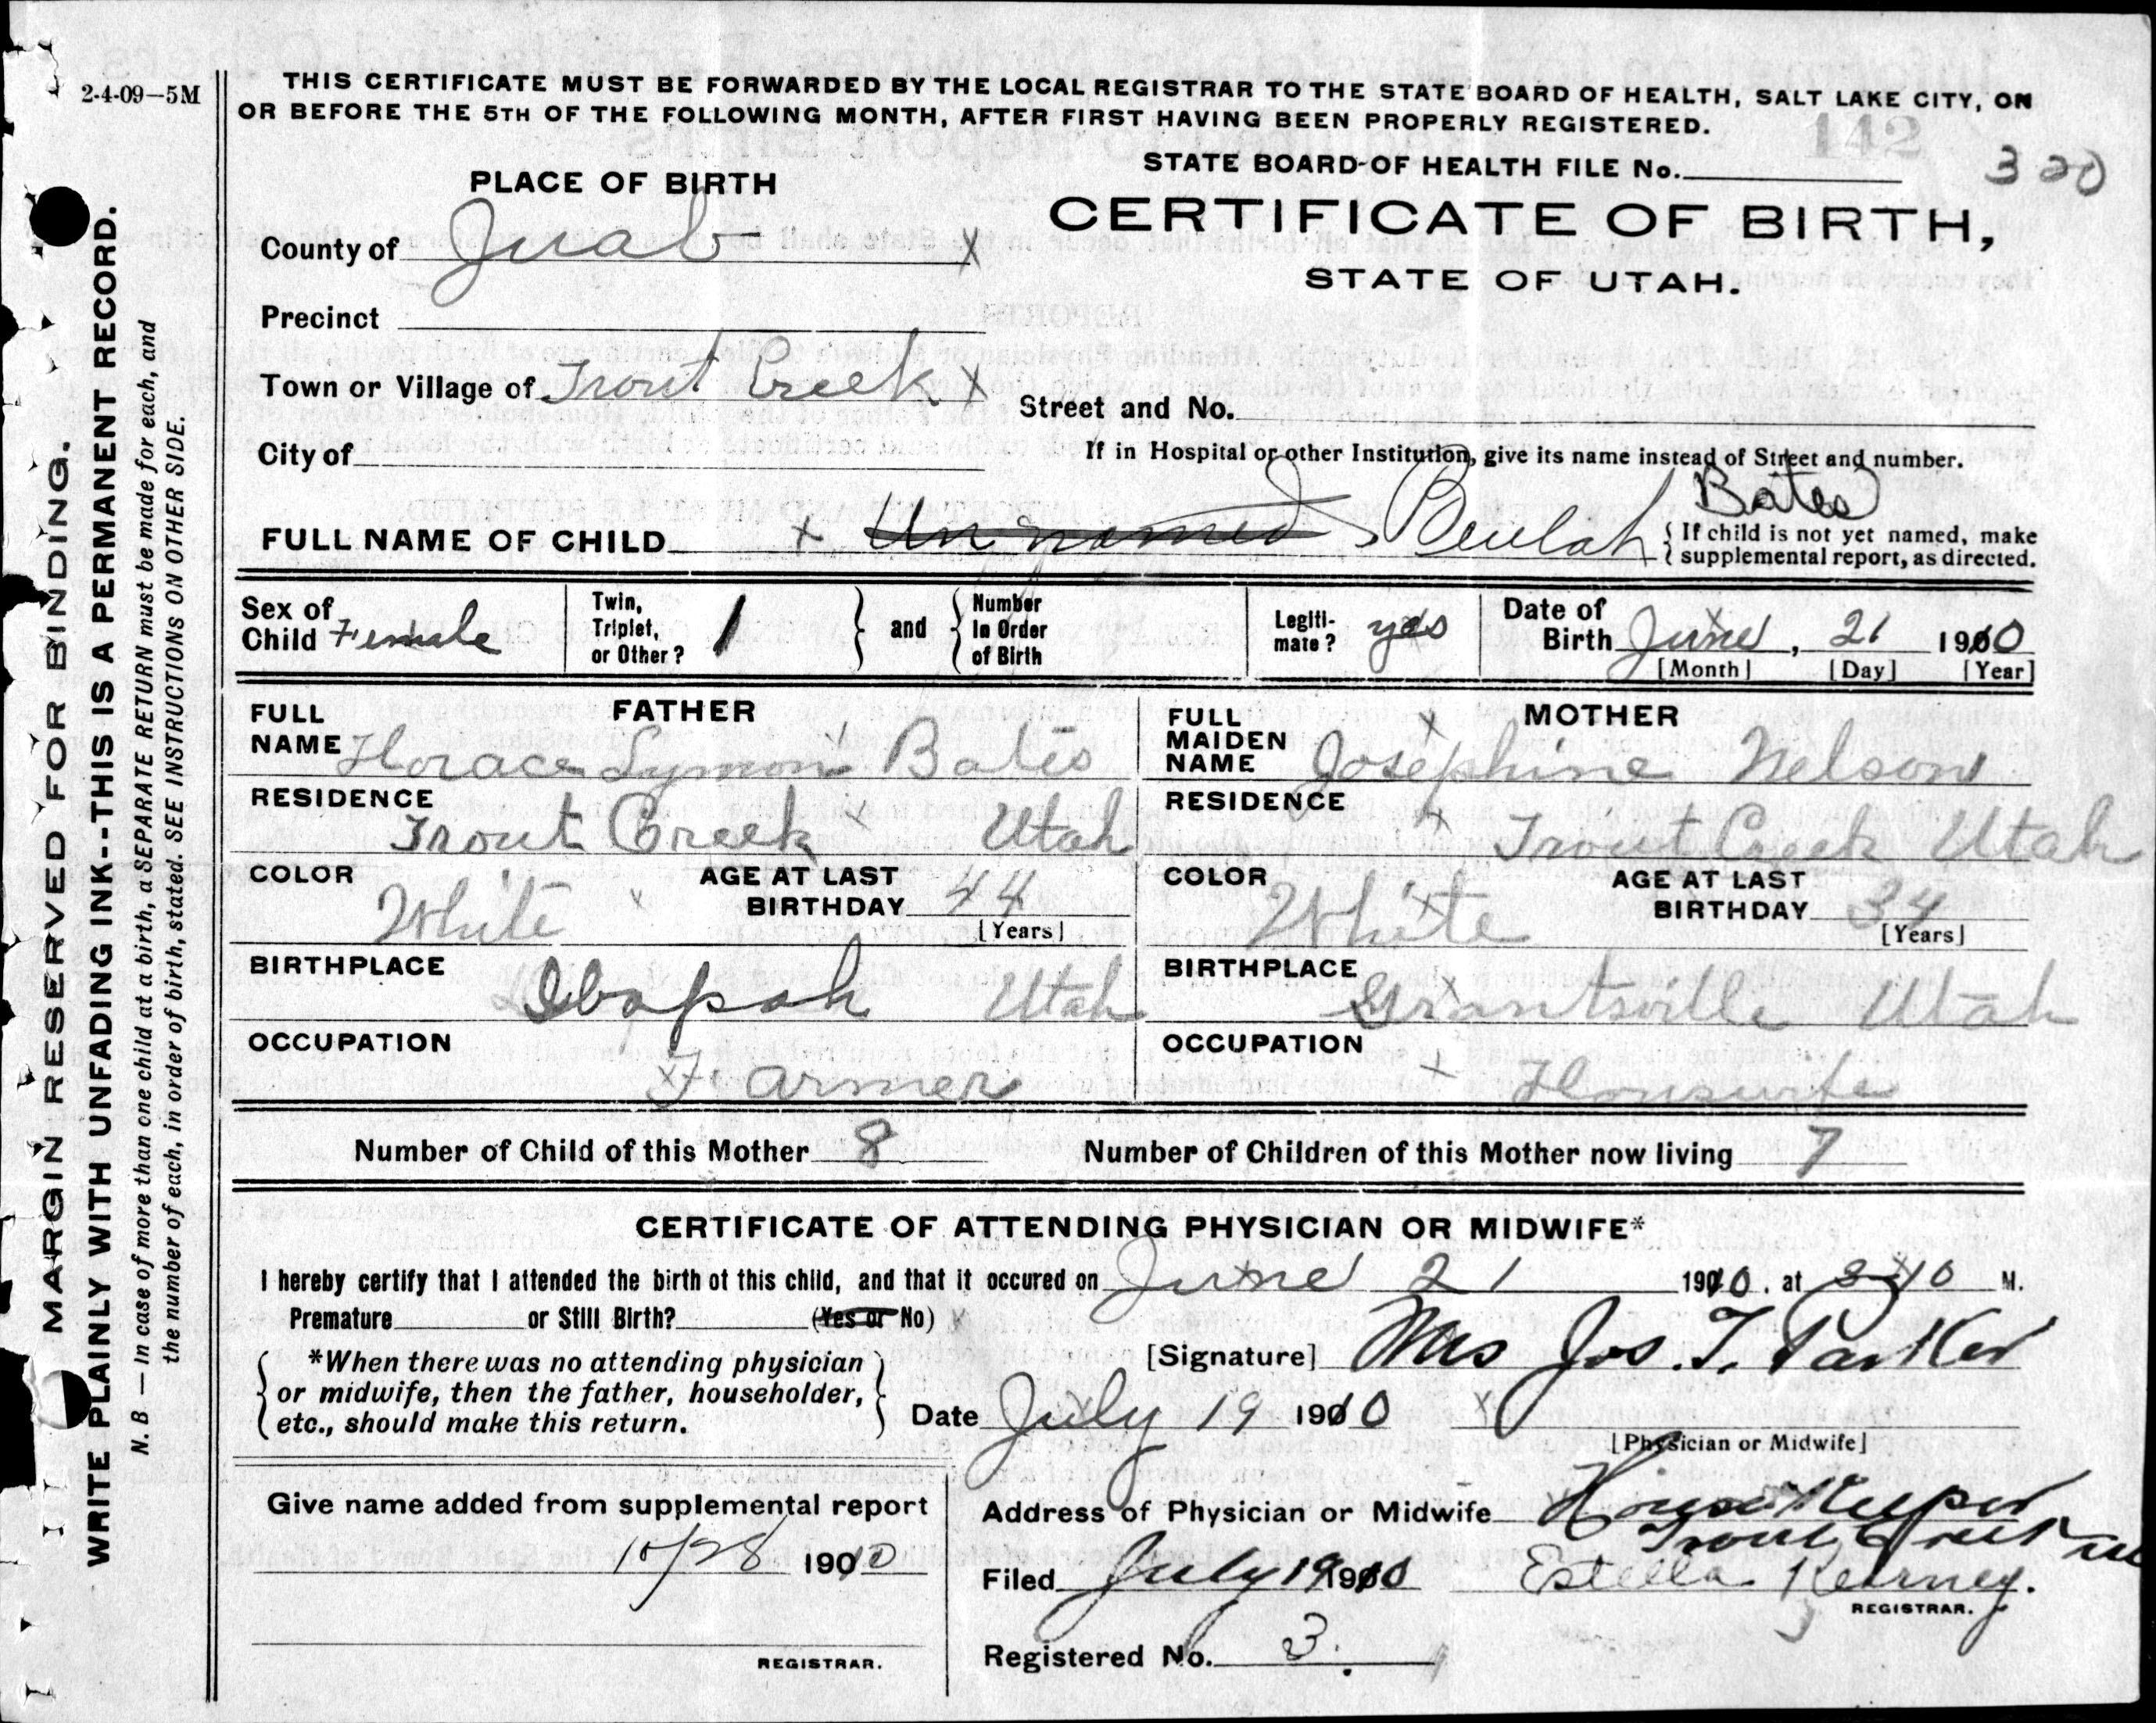 2-4-09—5M
THIS CERTIFICATE MUST BE FORWARDED BY THE LOCAL REGISTRAR TO THE STATE BOARD OF HEALTH, SALT LAKE CITY, ON
OR BEFORE THE 5TH OF THE FOLLOWING MONTH, AFTER FIRST HAVING BEEN PROPERLY REGISTERED.
142
STATE BOARD OF HEALTH FILE No. 320
PLACE OF BIRTH
CERTIFICATE OF BIRTH,
STATE OF UTAH.
County of Juab X
Precinct
Town or Village of Trout Creek X
Street and No.
City of
If in Hospital or other Institution, give its name instead of Street and number.
FULL NAME OF CHILD X Unnamed Beulah Bates
If child is not yet named, make
supplemental report, as directed.
Sex of
Child Female
Twin,
Triplet,
or Other? 1
and
Number
In Order
of Birth
Legiti-
mate? yes
Date of
Birth June, 21 1910
[Month] [Day] [Year]
FATHER
FULL
NAME Horace Lymon Bates
RESIDENCE
Trout Creek Utah
COLOR
White
AGE AT LAST
BIRTHDAY 44
[Years]
BIRTHPLACE
Ibapah Utah
OCCUPATION
Farmer
MOTHER
FULL
MAIDEN
NAME Josephine Nelson
RESIDENCE
Trout Creek Utah
COLOR
White
AGE AT LAST
BIRTHDAY 34
[Years]
BIRTHPLACE
Grantsville Utah
OCCUPATION
Housewife
Number of Child of this Mother 8
Number of Children of this Mother now living 7
CERTIFICATE OF ATTENDING PHYSICIAN OR MIDWIFE*
I hereby certify that I attended the birth of this child, and that it occured on June 21 1910. at M.
Premature or Still Birth? (Yes or No)
*When there was no attending physician
or midwife, then the father, householder,
etc., should make this return.
[Signature] Mrs Jos. T. Parker
Date July 19 1910
[Physician or Midwife]
Give name added from supplemental report
10/28 1910
REGISTRAR.
Address of Physician or Midwife House Keeper
Trout Creek
Filed July 19 1910 Estella Kearney.
REGISTRAR.
Registered No. 3.
MARGIN RESERVED FOR BINDING.
WRITE PLAINLY WITH UNFADING INK--THIS IS A PERMANENT RECORD.
N. B — In case of more than one child at a birth, a SEPARATE RETURN must be made for each, and
the number of each, in order of birth, stated. SEE INSTRUCTIONS ON OTHER SIDE.